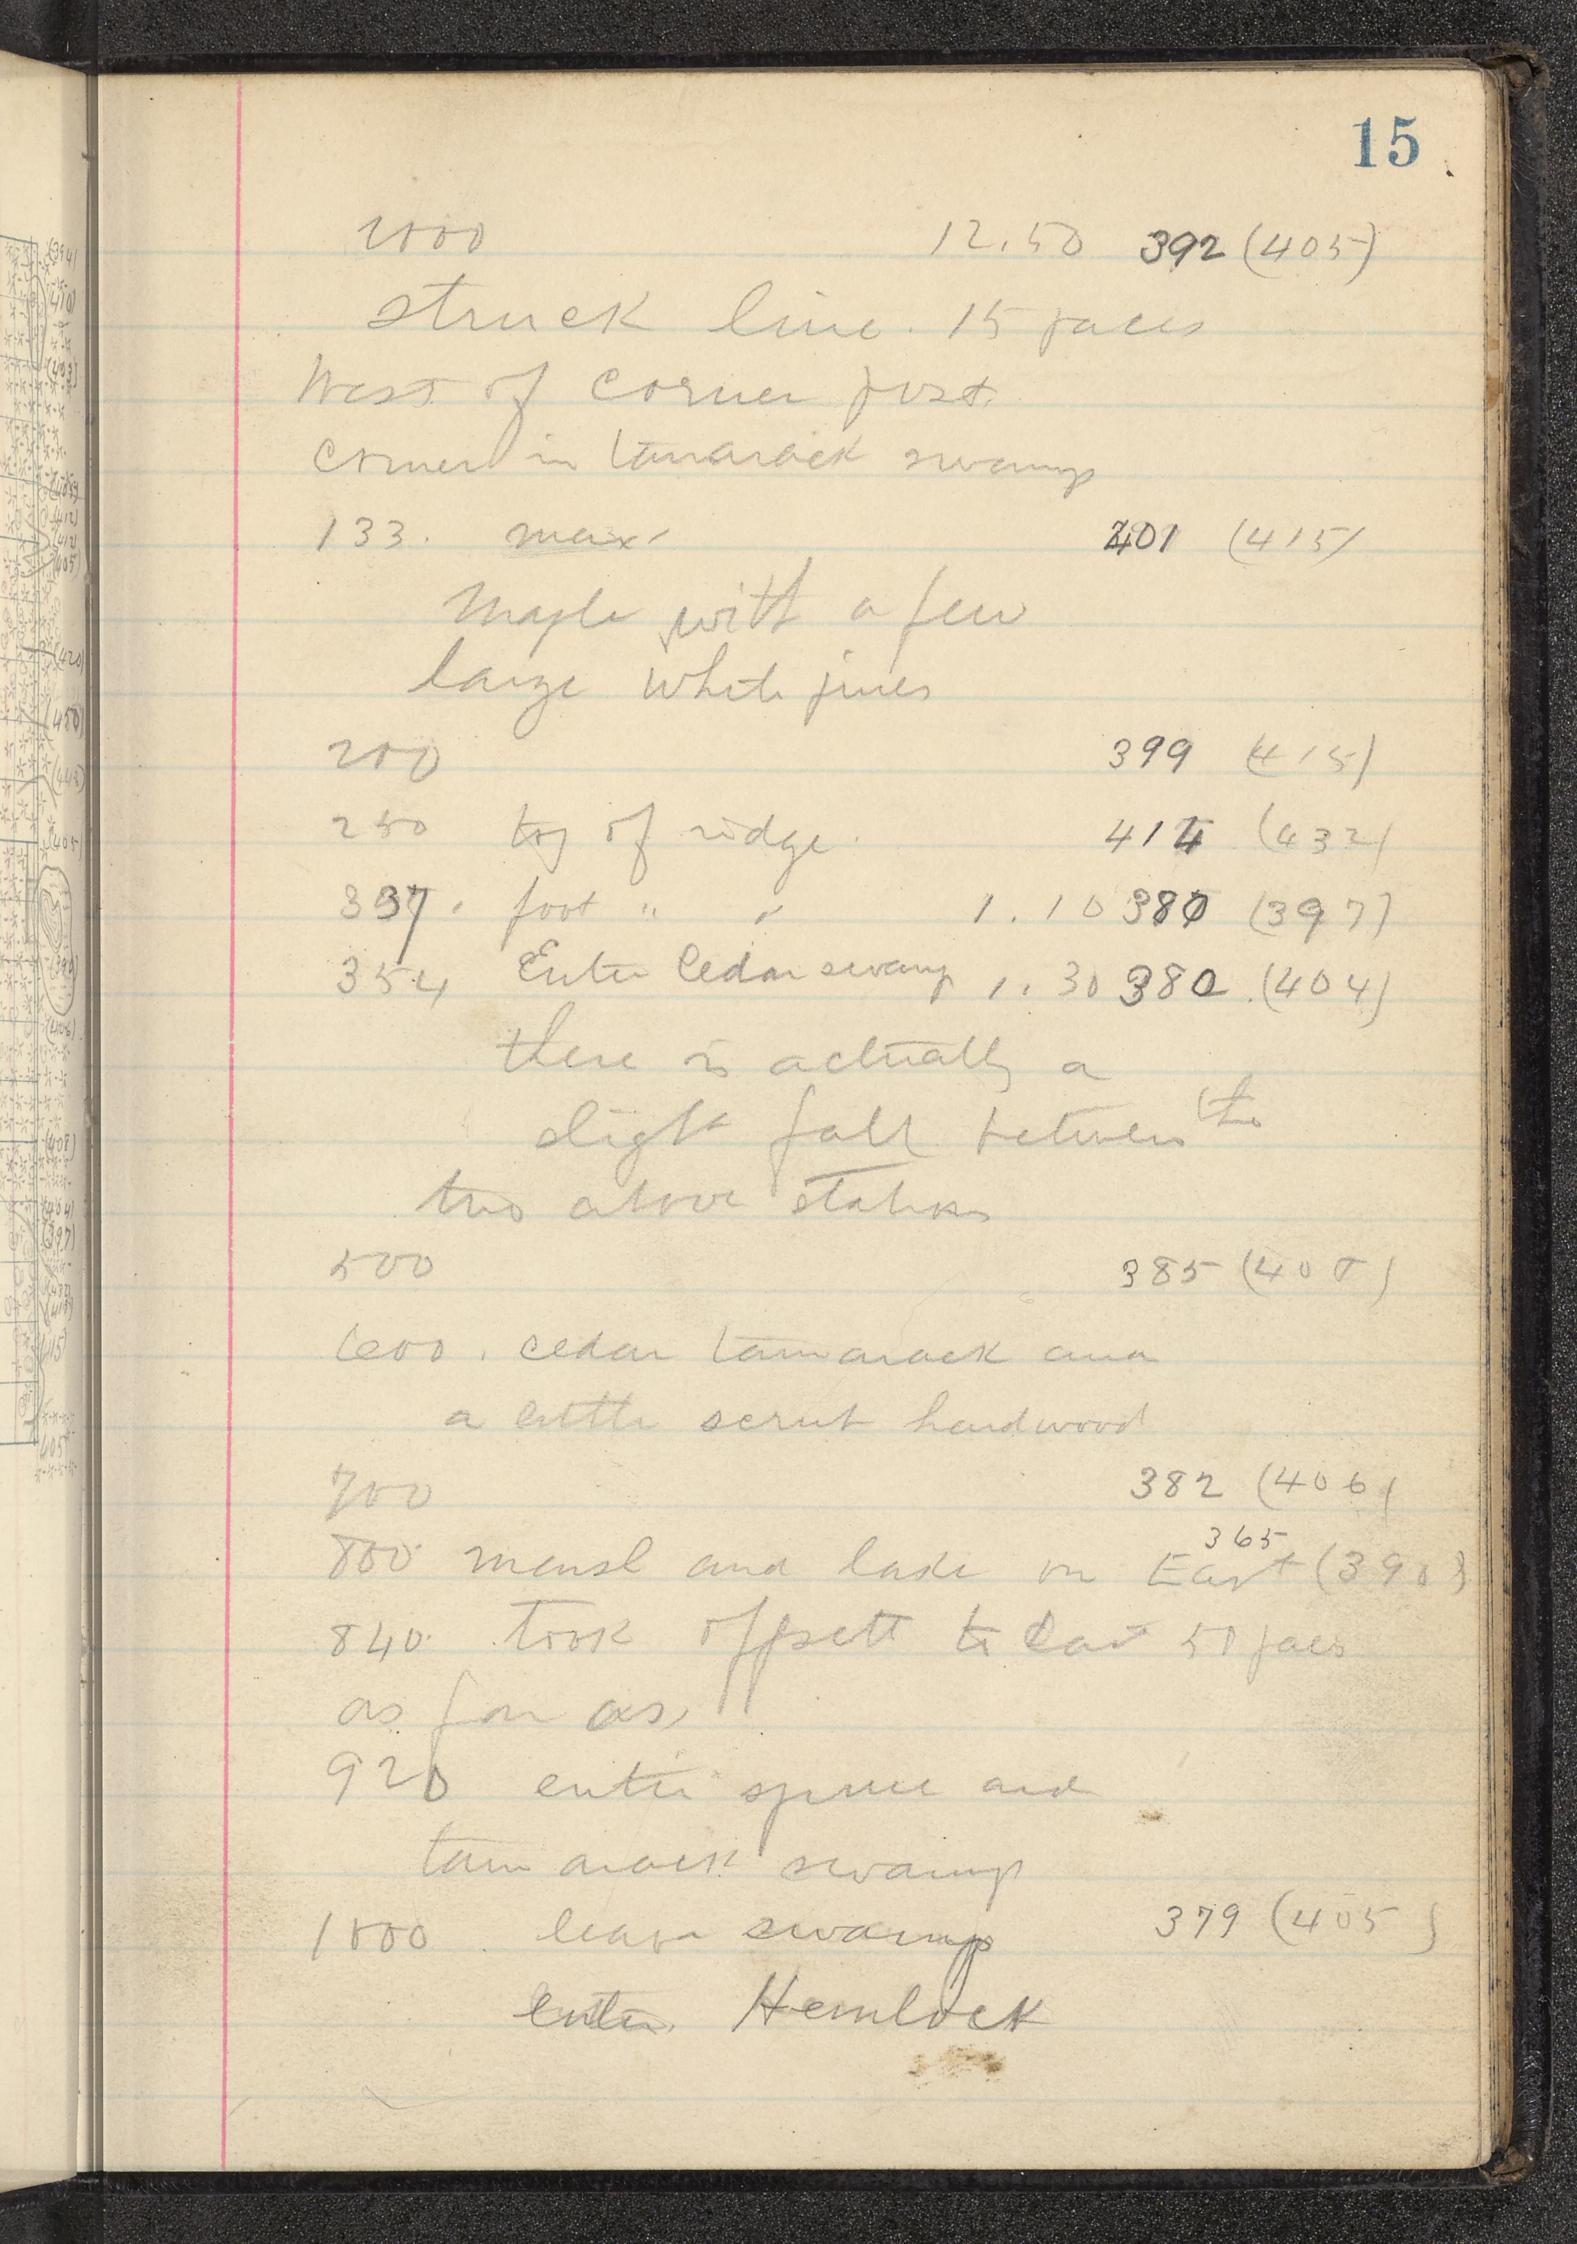 15
2000 12.50 392 (405)
struck line. 15 paces
West of corner post.
corner in tamarack swamp
133. max 401 (415)
Maple with a few
large white pines
200 399 (415)
250 top of ridge. 414 (432)
337. foot " " 1.10 380 (397)
354 Enter Cedar swamp 1.30 380 (404)
there is actually a
slight fall between the
two above stations
500 385 (408)
600. cedar tamarack and
a little scrub hardwood
700 382 (406)
365
800 marsh and lake on East (390)
840 took offsett to East 50 paces
as far as,
920 enter spruce and
tamarack swamp
1000 leave swamp 379 (405)
enter Hemlock